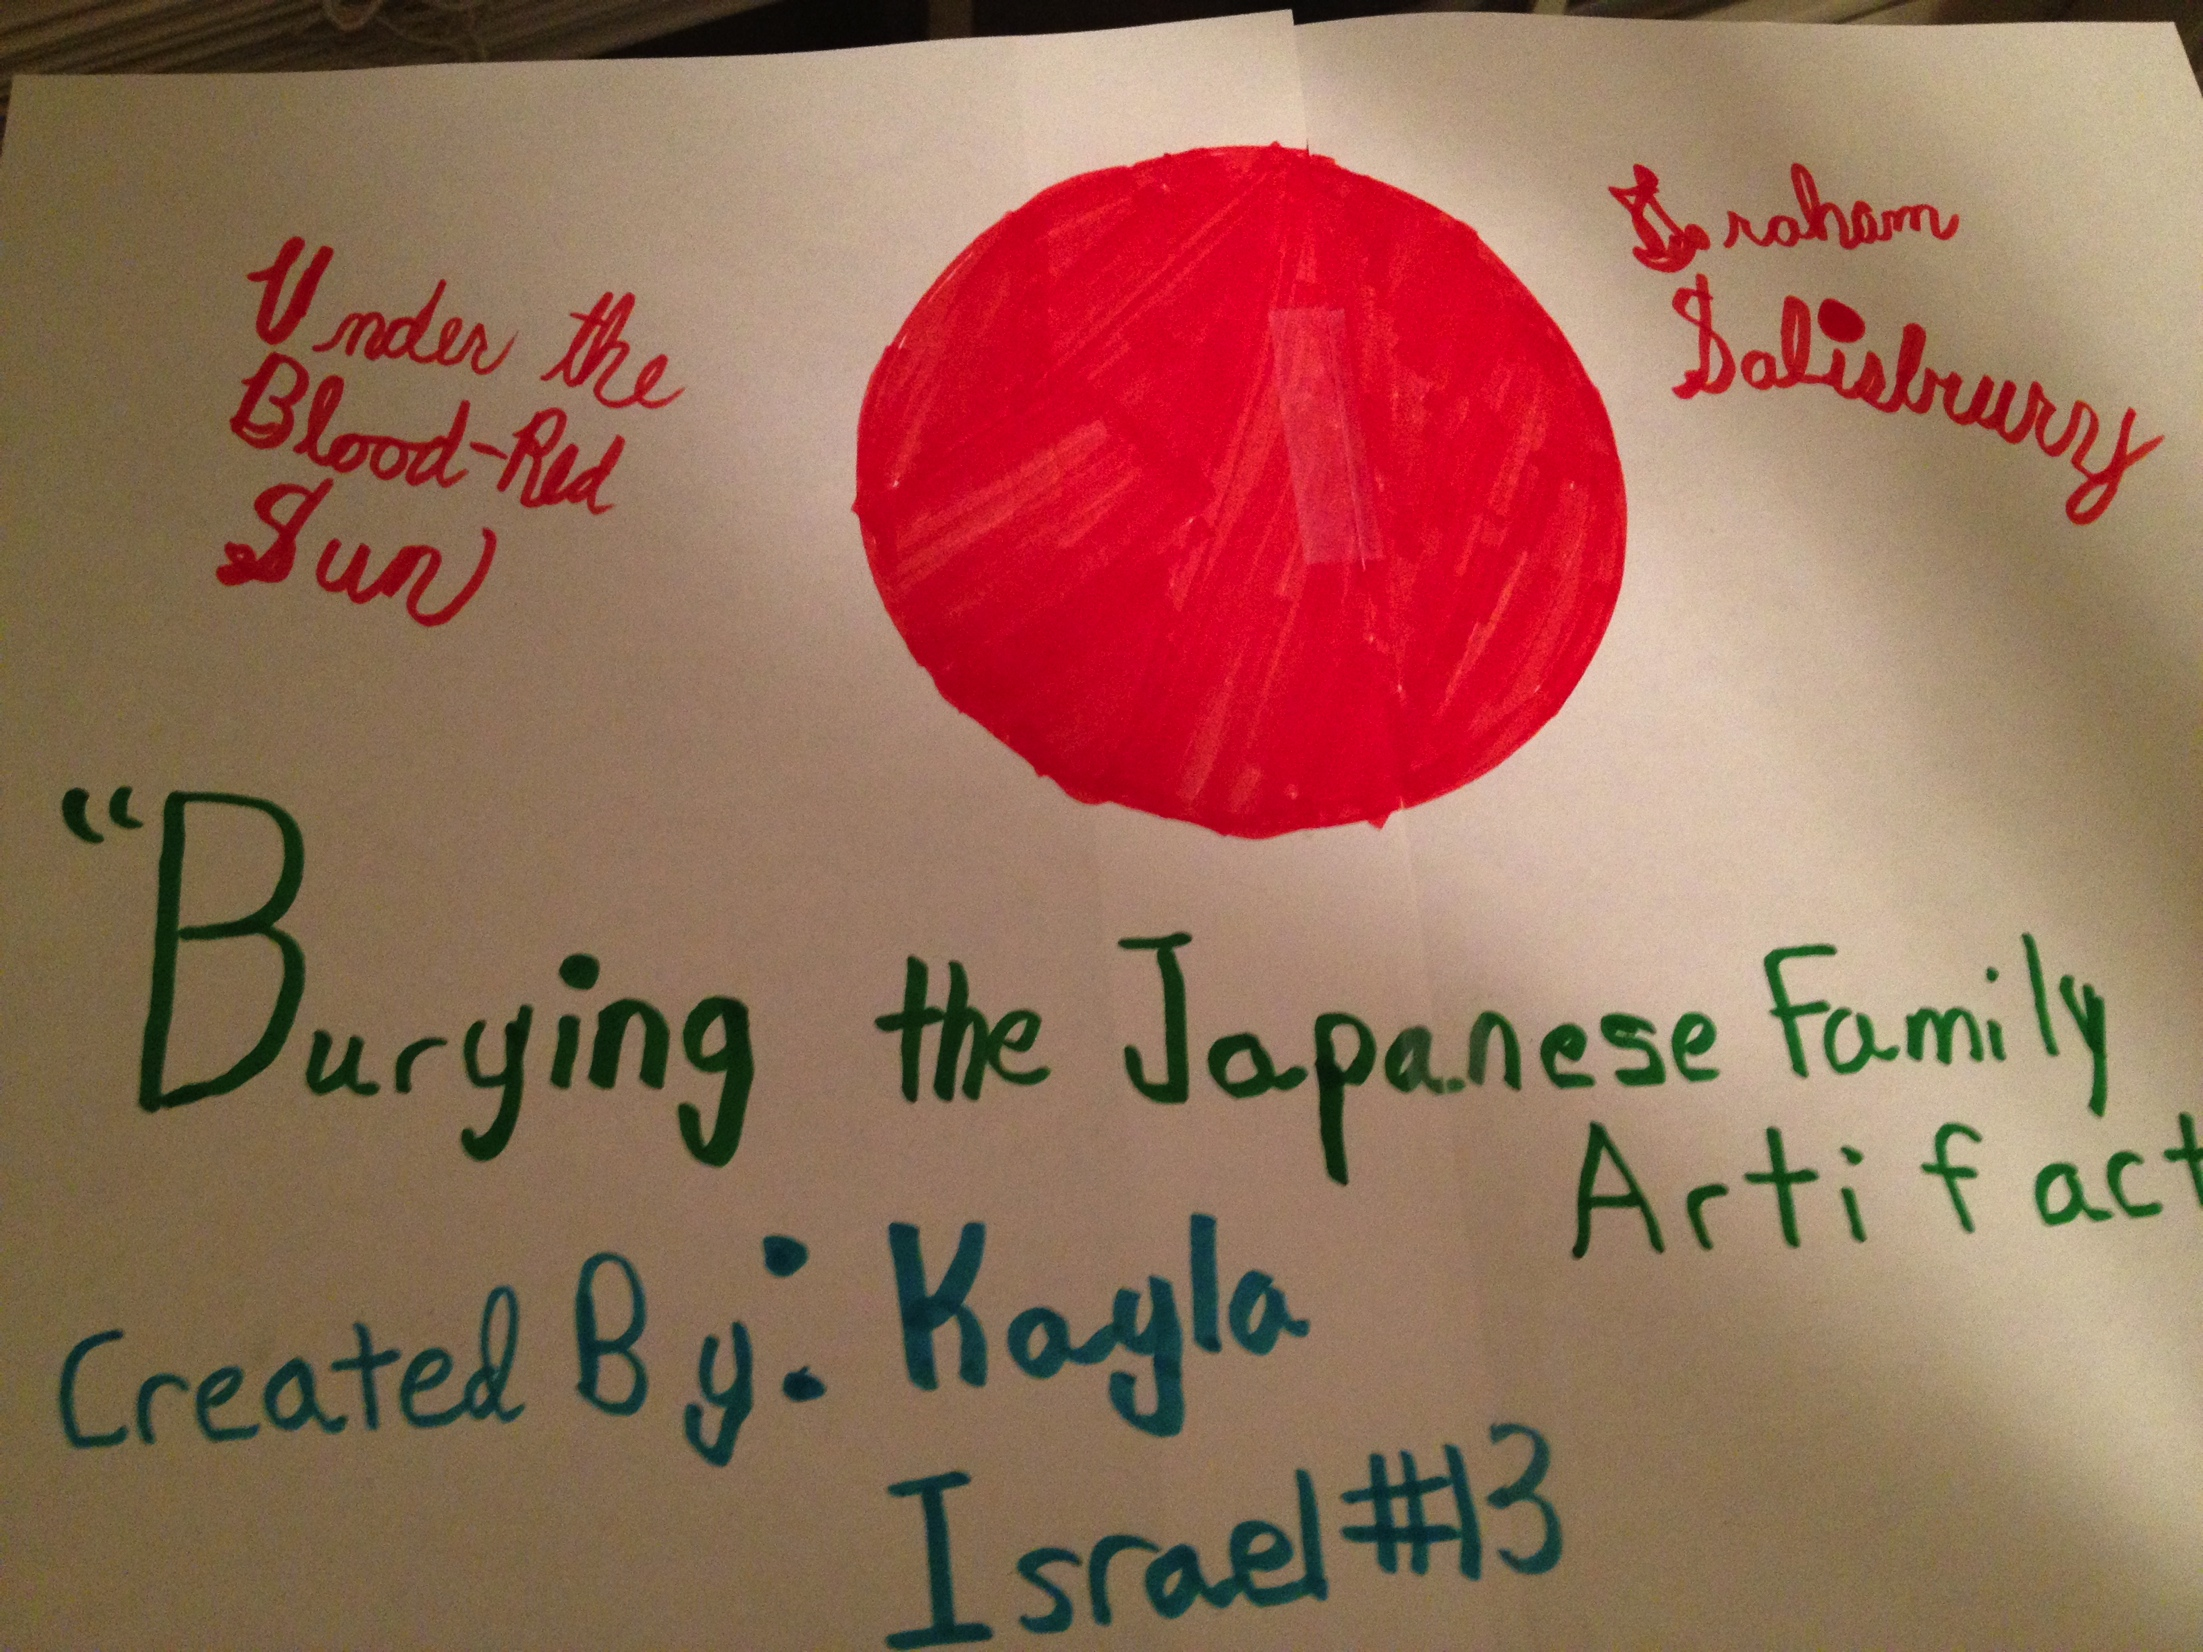 Under the
Blood-Red
Sun
Graham
Salisbury
“Burying the Japanese Family
Artifact
Created By: Kayla
Israel #13